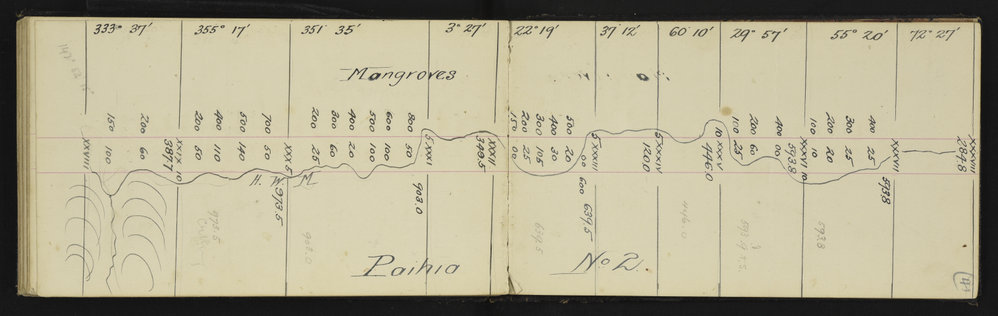 333° 37′ 355° 17′ 351° 35′ 3° 27′ 22° 19′ 37° 12′ 60° 10′ 29° 57′ 55° 20′ 72° 27′
Mangroves
XXVIII
150 100
200 60
XXIX 10
387.7
200 50
400 110
500 140
700 50
XXX 5
973.5
200 25
300 60
400 20
500 100
600 100
800 50
5 XXXI
903.0
XXXII
349.5
150 00
200 25
300 105
400 30
500 20
600 00
5 XXXIII
639.5
5 XXXIV
120.0
10 XXXV
446.0
100 25
200 60
400 00
XXXVI 10
593.8
100 10
200 20
300 25
400 25
XXXVII
593.8
XXXVIII
284.8
H. W. M
973.5
903.0
639.5
446.0
593.8
Paihia No 2.